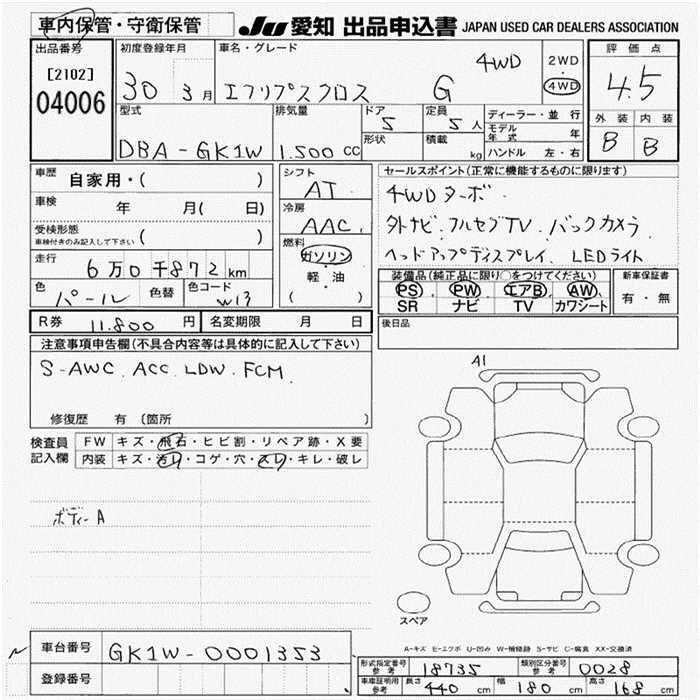 車内保管・守衛保管
JU 愛知 出品申込書 JAPAN USED CAR DEALERS ASSOCIATION
出品番号
[2102]
04006
初度登録年月
30 3月
車名・グレード
エクリプスクロス G 4WD
2WD
・
4WD
評価点
4.5
外装 内装
B B
型式
DBA-GK1W
排気量
1.500 CC
ドア
5
形状
定員
5人
積載
kg
ディーラー・並行
モデル年式 年
ハンドル 左・右
車歴 自家用・( )
車検 年 月( 日)
受検形態
車検付きのみ記入して下さい ( )
走行 6万0千872km
色 パール 色替 色コード W13
シフト
AT
冷房
AAC
燃料
ガソリン
・
軽・油
( )
セールスポイント(正常に機能するものに限ります)
4WDターボ
外ナビ.フルセグTV.バックカメラ
ヘッドアップディスプレイ.LEDライト
装備品(純正品に限り〇をつけてください)
PS PW エアB AW
SR ナビ TV カワシート
新車保証書
有・無
R券 11.800 円 名変期限 月 日
後日品
注意事項申告欄(不具合内容等は具体的に記入して下さい)
S-AWC.ACC.LDW.FCM.
修復歴 有 (箇所 )
検査員記入欄
FW キズ・飛石・ヒビ割・リペア跡・X要
内装 キズ・汚れ・コゲ・穴・スレ・キレ・破レ
ボディーA
A1
スペア
A-キズ E-エクボ U-凹み W-補修跡 S-サビ C-腐食 XX-交換済
車台番号 GK1W-0001353
登録番号
形式指定番号 参考 18735 類別区分番号 参考 0028
車庫証明用 参考 長さ 440 cm 幅 180 cm 高さ 168 cm